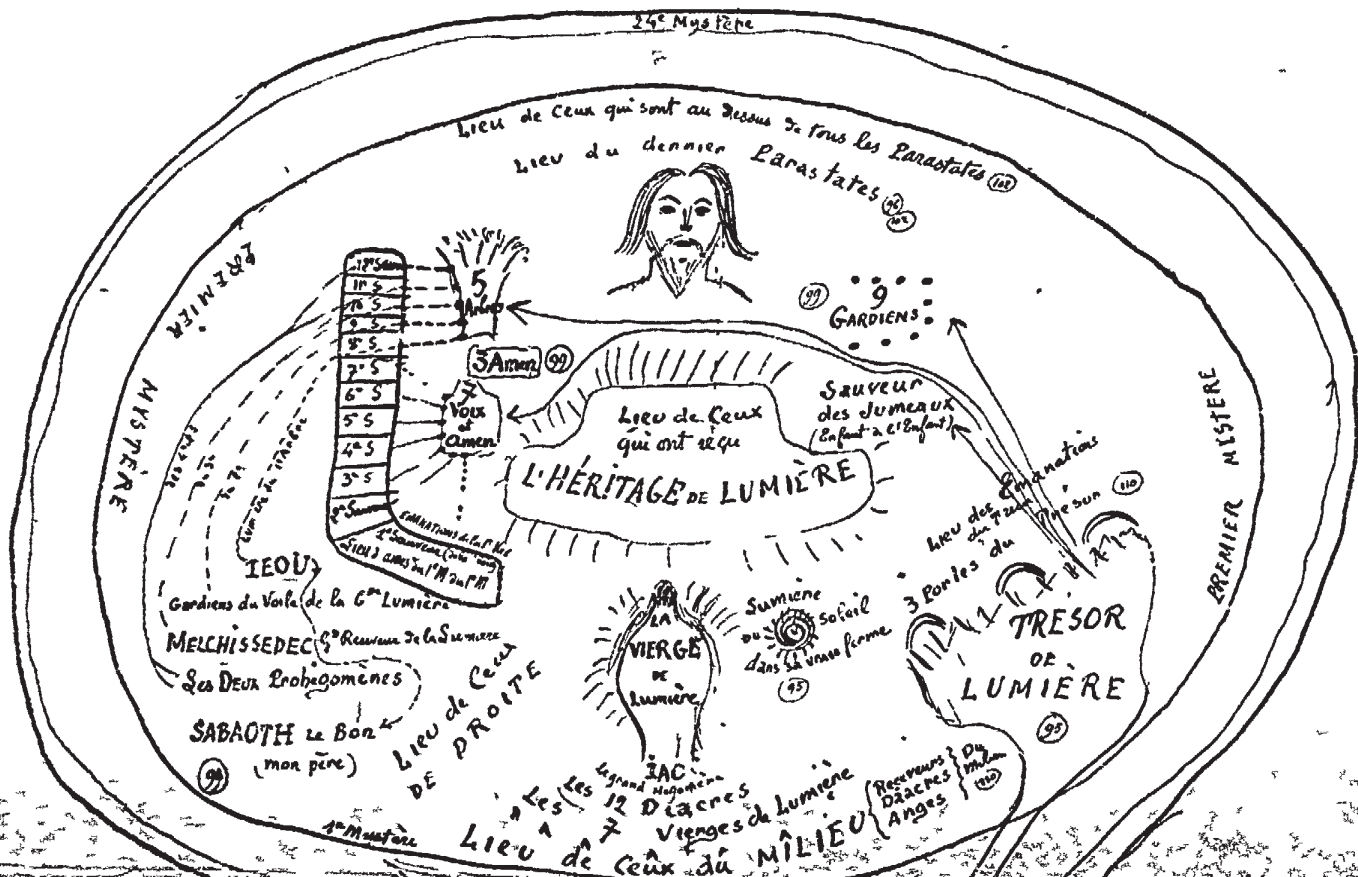 24e Mystère
Lieu de Ceux qui sont au dessus de tous les Parastates 102
Lieu du dernier Parastates 96 102
PREMIER MYSTÈRE
11e S
10e S
9e S
8e S
7e S
6e S
5e S
4e S
3e S
5
3 Amen 99
7
Voix
et
amen
99 9
GARDIENS
Sauveur
des Jumeaux
(Enfant de l'Enfant)
Lieu de Ceux
qui ont reçu
L'HÉRITAGE DE LUMIÈRE
PREMIER MISTERE
Lieu des Emanations
du Trésor 110
3 Portes du
TRESOR
DE
LUMIÈRE
95
IEOU
Gardiens du Voile de la Gde Lumière
MELCHISSEDEC Gd Receveur de la Lumière
Les Deux Prohigomènes
SABAOTH Le Bon
(mon père)
Lieu de Ceux
DE DROITE
LA
VIERGE
DE
Lumière
Lumière
du Soleil
dans sa vraie forme
95
IAC
Le grand
Les 12 Diacres
Les 7 Vierges de Lumière
Lieu de Ceux du MILIEU
Receveurs
Diacres
Anges
Du
Milieu
1er Mystère